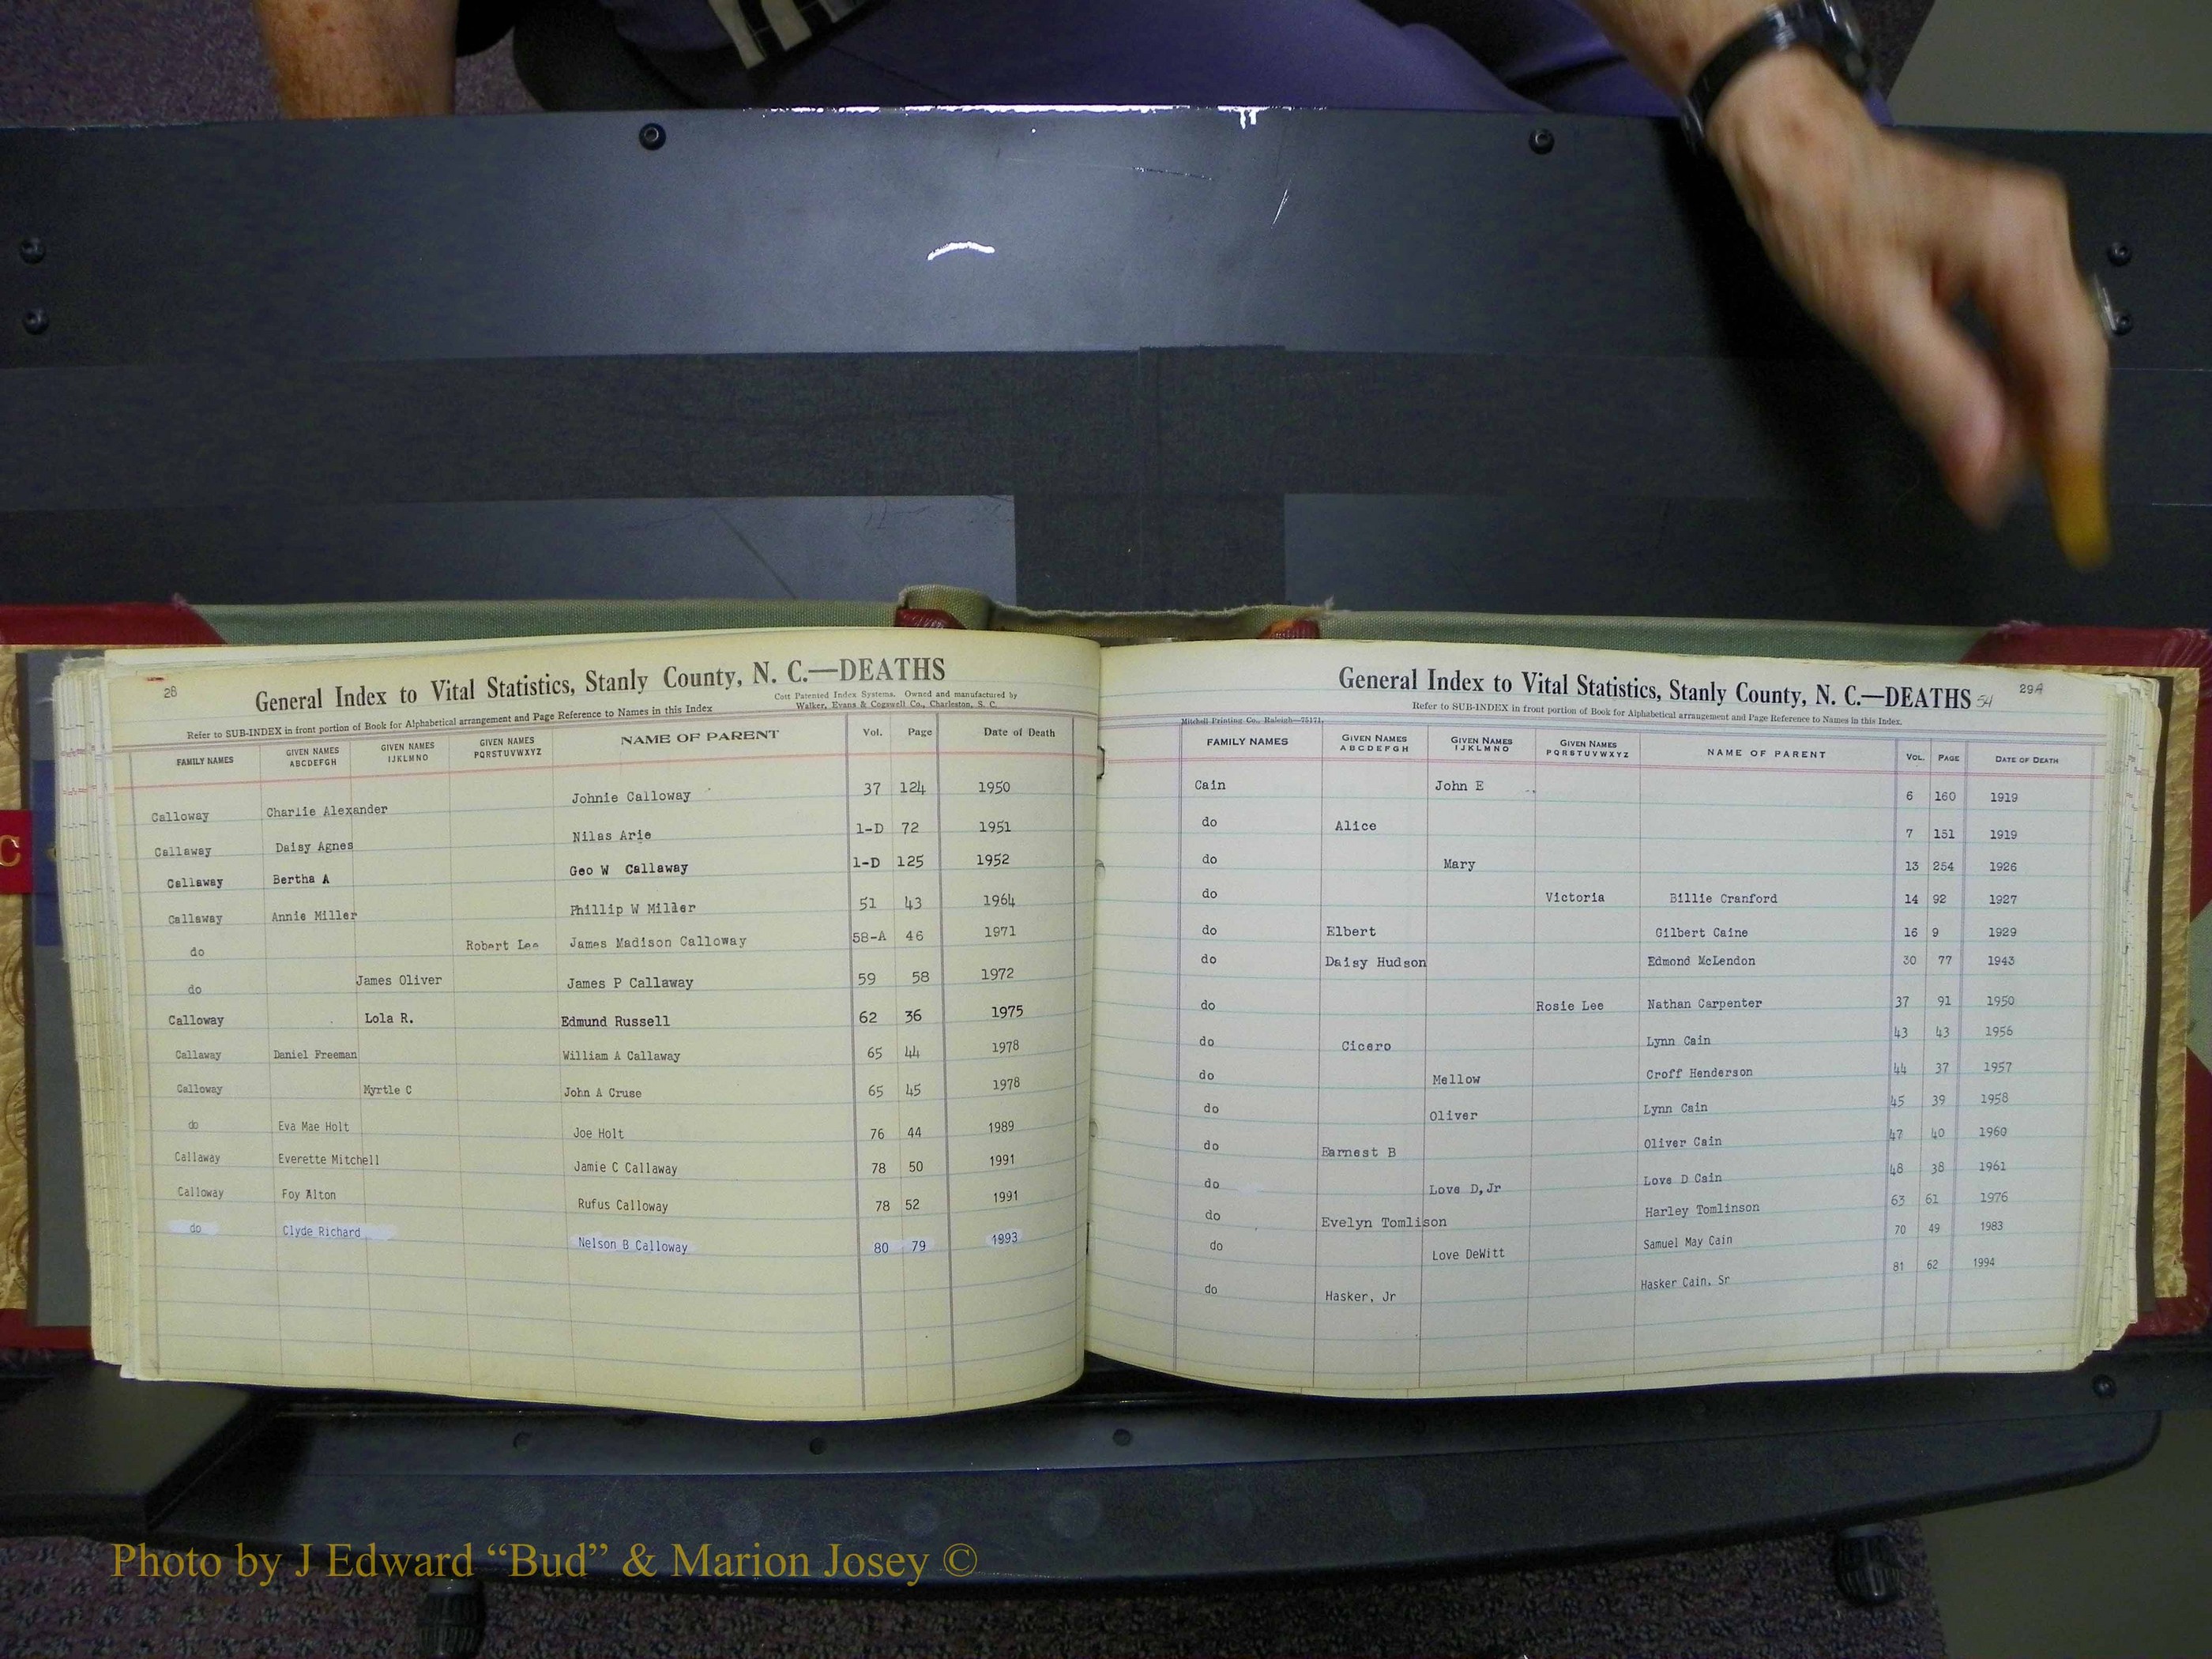 28
General Index to Vital Statistics, Stanly County, N. C.—DEATHS
Cott Patented Index Systems. Owned and manufactured by
Walker, Evans & Cogswell Co., Charleston, S. C.
Refer to SUB-INDEX in front portion of Book for Alphabetical arrangement and Page Reference to Names in this Index
FAMILY NAMES GIVEN NAMES ABCDEFGH GIVEN NAMES IJKLMNO GIVEN NAMES PQRSTUVWXYZ NAME OF PARENT Vol. Page Date of Death
Calloway Charlie Alexander Johnie Calloway 37 124 1950
Callaway Daisy Agnes Nilas Arie 1-D 72 1951
Callaway Bertha A Geo W Callaway 1-D 125 1952
Callaway Annie Miller Phillip W Miller 51 43 1964
do Robert Lee James Madison Calloway 58-A 46 1971
do James Oliver James P Callaway 59 58 1972
Calloway Lola R. Edmund Russell 62 36 1975
Callaway Daniel Freeman William A Callaway 65 44 1978
Calloway Myrtle C John A Cruse 65 45 1978
do Eva Mae Holt Joe Holt 76 44 1989
Callaway Everette Mitchell Jamie C Callaway 78 50 1991
Calloway Foy Alton Rufus Calloway 78 52 1991
do Clyde Richard Nelson B Calloway 80 79 1993
General Index to Vital Statistics, Stanly County, N. C.—DEATHS 54 29A
Refer to SUB-INDEX in front portion of Book for Alphabetical arrangement and Page Reference to Names in this Index.
Mitchell Printing Co., Raleigh—75171
FAMILY NAMES GIVEN NAMES ABCDEFGH GIVEN NAMES IJKLMNO GIVEN NAMES PQRSTUVWXYZ NAME OF PARENT VOL. PAGE DATE OF DEATH
Cain John E 6 160 1919
do Alice 7 151 1919
do Mary 13 254 1926
do Victoria Billie Cranford 14 92 1927
do Elbert Gilbert Caine 16 9 1929
do Daisy Hudson Edmond McLendon 30 77 1943
do Rosie Lee Nathan Carpenter 37 91 1950
do Cicero Lynn Cain 43 43 1956
do Mellow Croff Henderson 44 37 1957
do Oliver Lynn Cain 45 39 1958
do Earnest B Oliver Cain 47 40 1960
do Love D,Jr Love D Cain 48 38 1961
do Evelyn Tomlison Harley Tomlinson 63 61 1976
do Love DeWitt Samuel May Cain 70 49 1983
do Hasker, Jr Hasker Cain, Sr 81 62 1994
C
Photo by J Edward “Bud” & Marion Josey ©